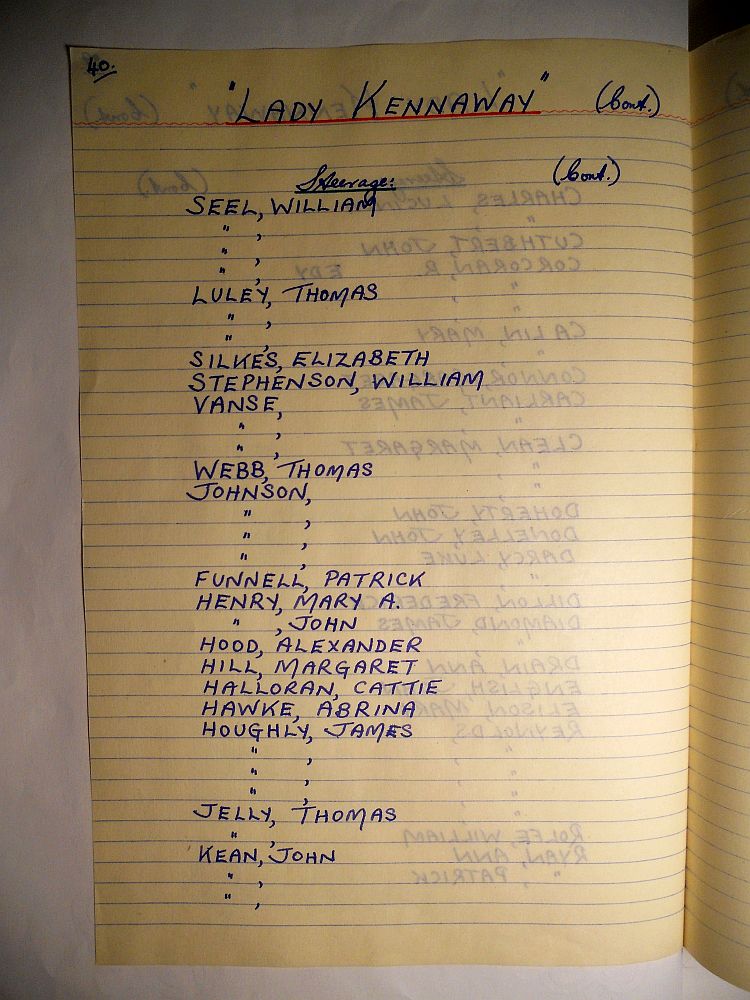 40.
"LADY KENNAWAY" (Cont.)
Steerage: (Cont.)
SEEL, WILLIAM
" ,
" ,
" ,
LULEY, THOMAS
" ,
" ,
SILKES, ELIZABETH
STEPHENSON, WILLIAM
VANSE,
" ,
" ,
WEBB, THOMAS
JOHNSON,
" ,
" ,
" ,
FUNNELL, PATRICK
HENRY, MARY A.
" , JOHN
HOOD, ALEXANDER
HILL, MARGARET
HALLORAN, CATTIE
HAWKE, ABRINA
HOUGHLY, JAMES
" ,
" ,
" ,
JELLY, THOMAS
" ,
KEAN, JOHN
" ,
" ,